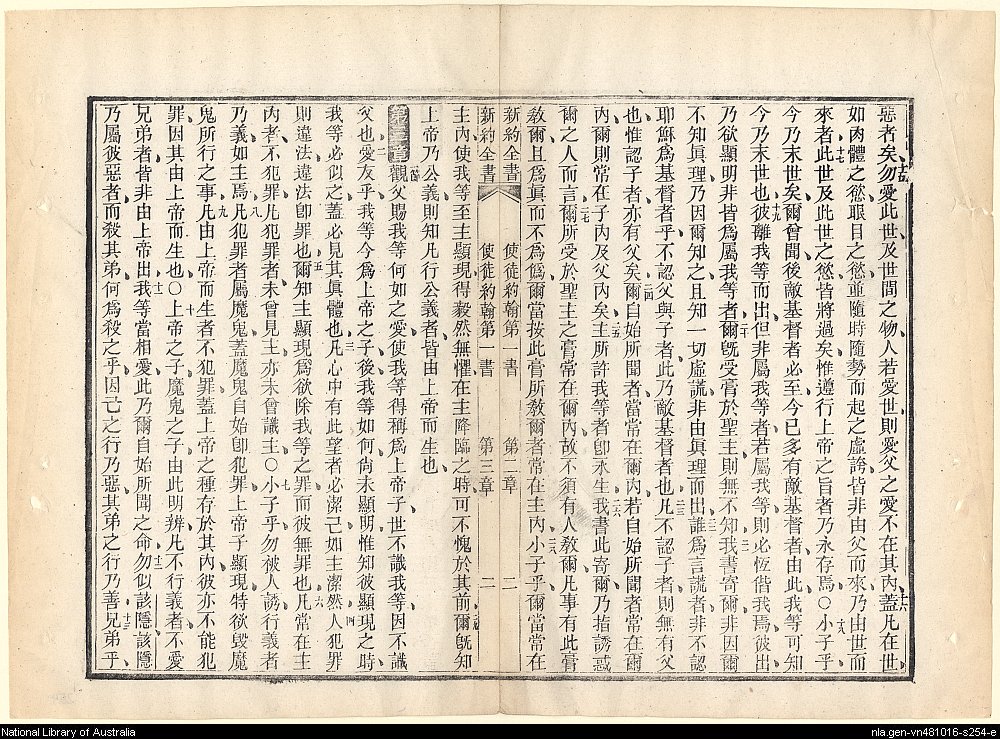 惡者矣、勿愛此世、及世間之物、人若愛世、則愛父之愛不在其內、蓋凡在世、
如肉體之慾、眼目之慾、並隨時隨勢而起之虛誇、皆非由父而來、乃由世而
來者、此世及此世之慾、皆將過矣、惟遵行上帝之旨者、乃永存焉○小子乎、
今乃末世矣、爾曾聞後敵基督者必至、今已多有敵基督者、由此我等可知
今乃末世也、彼離我等而出、但非屬我等者、若屬我等、則必恆偕我焉、彼出
乃欲顯明非皆為屬我等者、爾既受膏於聖主、則無不知、我書寄爾、非因爾
不知眞理、乃因爾知之、且知一切虛謊、非由眞理而出、誰為言謊者、非不認
耶穌為基督者乎、不認父與子者、此乃敵基督者也、凡不認子者、則無有父
也、惟認子者、亦有父矣、爾自始所聞者、當常在爾內、若自始所聞者、常在爾
內、爾則常在子內、及父內矣、主所許我等者、卽永生、我書此寄爾、乃指誘惑
爾之人而言、爾所受於聖主之膏、常在爾內、故不須有人敎爾、凡事有此膏
敎爾、且為眞而不為僞、爾當按此膏所敎爾者、常在主內、小子乎、爾當常在
新約全書 使徒約翰第一書 第二章 二
新約全書 使徒約翰第一書 第三章 二
主內、使我等至主顯現、得毅然無懼、在主降臨之時、可不愧於其前、爾既知
上帝乃公義、則知凡行公義者、皆由上帝而生也、
第三章 觀父賜我等何如之愛、使我等得稱為上帝子、世不識我等、因不識
父也、愛友乎、我等今為上帝之子、後我等如何、尙未顯明、惟知彼顯現之時、
我等必似之、蓋必見其眞體也、凡心中有此望者、必潔己如主潔然、人犯罪
則違法、違法卽罪也、爾知主顯現、為欲除我等之罪、而彼無罪也、凡常在主
內者、不犯罪、凡犯罪者、未曾見主、亦未曾識主○小子乎、勿被人誘、行義者
乃義、如主焉、凡犯罪者屬魔鬼、蓋魔鬼自始卽犯罪、上帝子顯現、特欲毀魔
鬼所行之事、凡由上帝而生者、不犯罪、蓋上帝之種、存於其內、彼亦不能犯
罪、因其由上帝而生也○上帝之子、魔鬼之子、由此明辨、凡不行義者、不愛
兄弟者、皆非由上帝出、我等當相愛、此乃爾自始所聞之命、勿似該隱、該隱
乃屬彼惡者、而殺其弟、何為殺之乎、因己之行乃惡、其弟之行乃善、兄弟乎、
National Library of Australia
nla.gen-vn481016-s254-e